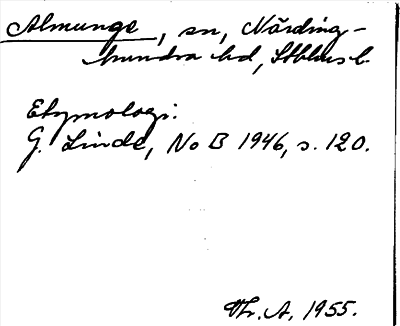 Almunge, sn, Närding-
hundra hd, Sthlms l.
Etymologi.
G. Linde, No B 1946, s. 120.
Th. A. 1955.